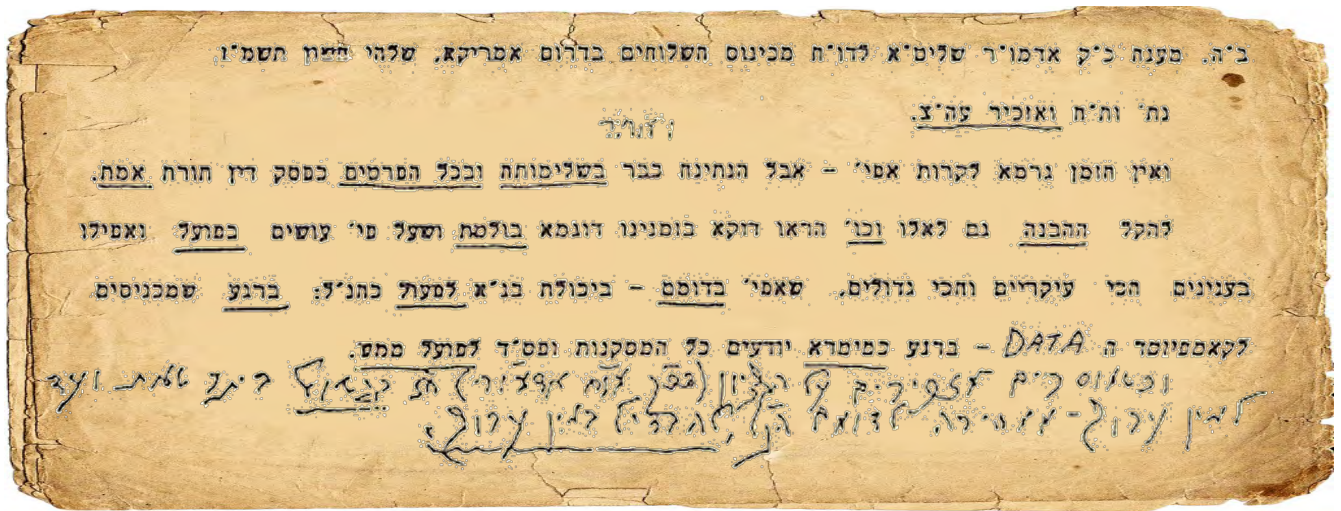 ב"ה. מענה כ"ק אדמו"ר שליט"א לדו"ח מכינוס השלוחים בדרום אמריקא, שלהי חשון תשמ"ו.
נת' ות"ח ואזכיר עה"צ.
ואין הזמן גרמא לקרות אפי' – אבל הנתינה כבר בשלימותה ובכל הפרטים כפסק דין תורת אמת.
להקל ההבנה גם לאלו וכו' הראו דוקא בזמנינו דוגמא בולטת ושעל פי' עושים בפועל ואפילו
בענינים הכי עיקריים והכי גדולים. שאפי' בדומם – ביכולת בנ"א לפעול כהנ"ל: ברגע שמכניסים
לקאמפיוטר ה DATA – ברגע כמימרא יודעים כל המסקנות ופס"ד לפועל ממש.
ועד
לאין ערוך
לאין ערוך.